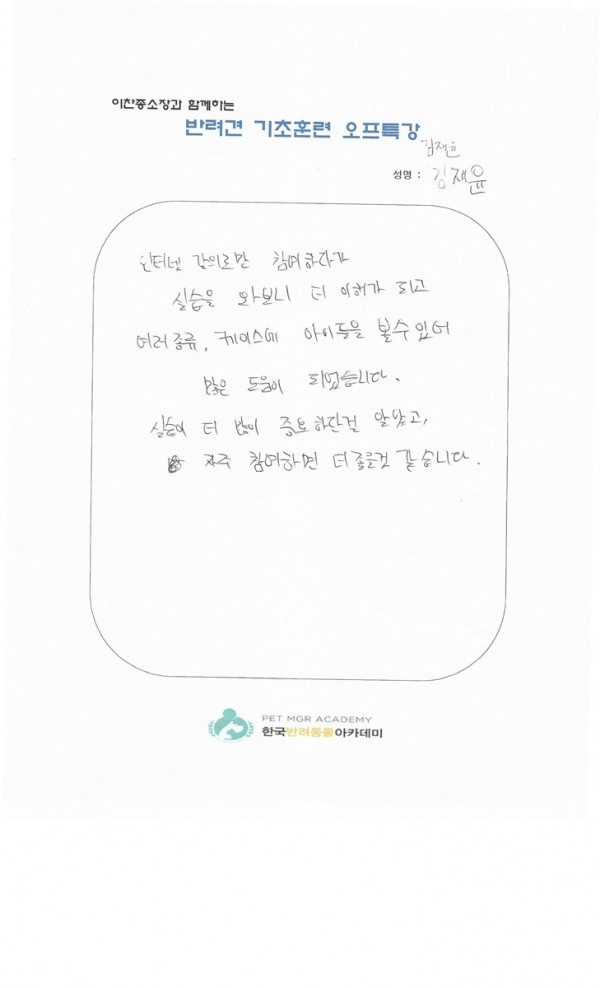 이찬종소장과 함께하는
반려견 기초훈련 오프특강
김재윤
성명 : 김재윤
인터넷 강의로만 참여하다가
실습을 와보니 더 이해가 되고
여러종류, 케이스에 아이들을 볼수있어
많은 도움이 되었습니다.
실습이 더 많이 중요하단걸 알았고,
자주 참여하면 더좋을것 같습니다.
PET MGR ACADEMY
한국반려동물아카데미